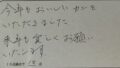 今年もおいしいカニを
いただきました
来年も宜しくお願い
いたします